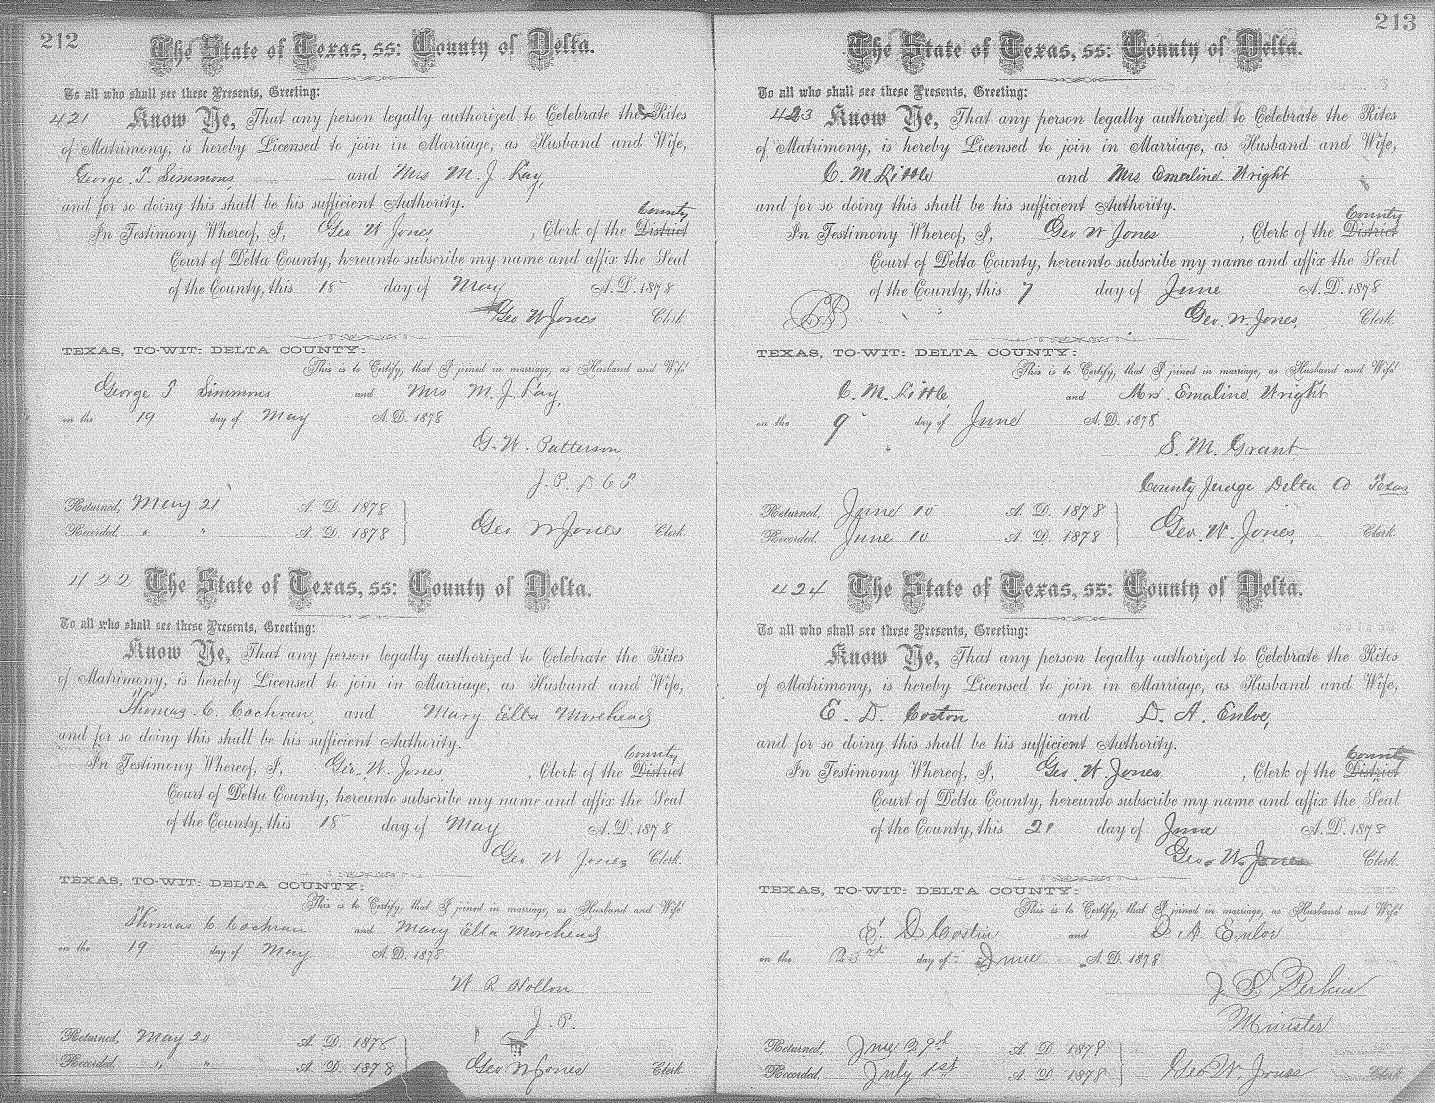 212
The State of Texas, ss: County of Delta.
To all who shall see these Presents, Greeting:
421 Know Ye, That any person legally authorized to Celebrate the Rites
of Matrimony, is hereby Licensed to join in Marriage, as Husband and Wife,
George T. Simmons, and Mrs M. J. Kay,
and for so doing this shall be his sufficient Authority.
County
In Testimony Whereof, I, Geo W Jones, Clerk of the District
Court of Delta County, hereunto subscribe my name and affix the Seal
of the County, this 18 day of May A. D. 1878
Geo W Jones Clerk
TEXAS, TO-WIT: DELTA COUNTY:
This is to Certify, that I joined in marriage, as Husband and Wife
George T Simmons and Mrs M. J. Kay,
on the 19 day of May A. D. 1878
G. W. Patterson
J. P. D C T
Returned, May 21 A. D. 1878
Recorded, " " A. D. 1878 Geo W Jones Clerk
422 The State of Texas, ss: County of Delta.
To all who shall see these Presents, Greeting:
Know Ye, That any person legally authorized to Celebrate the Rites
of Matrimony, is hereby Licensed to join in Marriage, as Husband and Wife,
Thomas C Cochran and Mary Ella Morehead
and for so doing this shall be his sufficient Authority.
County
In Testimony Whereof, I, Geo. W. Jones, Clerk of the District
Court of Delta County, hereunto subscribe my name and affix the Seal
of the County, this 18 day of May A. D. 1878
Geo W Jones Clerk
TEXAS, TO-WIT: DELTA COUNTY:
This is to Certify, that I joined in marriage, as Husband and Wife
Thomas C Cochran and Mary Ella Morehead
on the 19 day of May A. D. 1878
W R Hollon
J. P.
Returned, May 20 A. D. 1878
Recorded, " " A. D. 1878 Geo W Jones Clerk
213
The State of Texas, ss: County of Delta.
To all who shall see these Presents, Greeting:
423 Know Ye, That any person legally authorized to Celebrate the Rites
of Matrimony, is hereby Licensed to join in Marriage, as Husband and Wife,
C. M. Little and Mrs Emaline Wright
and for so doing this shall be his sufficient Authority.
County
In Testimony Whereof, I, Geo W Jones, Clerk of the District
Court of Delta County, hereunto subscribe my name and affix the Seal
of the County, this 7 day of June A. D. 1878
Geo. W. Jones, Clerk
TEXAS, TO-WIT: DELTA COUNTY:
This is to Certify, that I joined in marriage, as Husband and Wife
C. M. Little, and Mrs. Emaline Wright
on the 9 day of June A. D. 1878
S. M. Grant
County Judge Delta Co Texas
Returned, June 10 A. D. 1878
Recorded, June 10 A. D. 1878 Geo. W. Jones, Clerk
424 The State of Texas, ss: County of Delta.
To all who shall see these Presents, Greeting:
Know Ye, That any person legally authorized to Celebrate the Rites
of Matrimony, is hereby Licensed to join in Marriage, as Husband and Wife,
E. D. Coston and D. A. Enloe,
and for so doing this shall be his sufficient Authority.
County
In Testimony Whereof, I, Geo. W. Jones, Clerk of the District
Court of Delta County, hereunto subscribe my name and affix the Seal
of the County, this 21 day of June A. D. 1878
Geo. W. Jones Clerk
TEXAS, TO-WIT: DELTA COUNTY:
This is to Certify, that I joined in marriage, as Husband and Wife
E. D Costin and D A Enloe
on the 23rd day of June A. D. 1878
J S Perkins
Minister
Returned, June 29th A. D. 1878
Recorded, July 1st A. D. 1878 Geo W Jones Clerk